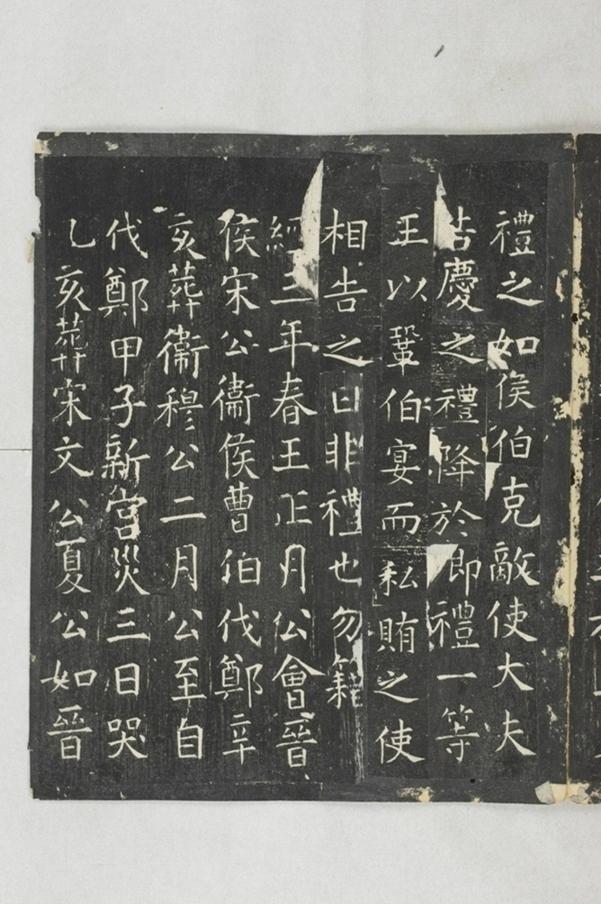 禮之如侯伯克敵使大夫
告慶之禮降於卿禮一等
王以鞏伯宴而私賄之使
相告之曰非禮也勿籍
經三年春王正月公會晉
侯宋公衛侯曹伯伐鄭辛
亥葬衛穆公二月公至自
伐鄭甲子新宮災三日哭
乙亥葬宋文公夏公如晉